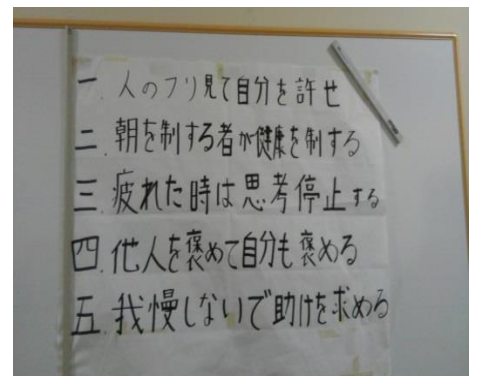 一．人のフリ見て自分を許せ
二．朝を制する者が健康を制する
三．疲れた時は思考停止する
四．他人を褒めて自分も褒める
五．我慢しないで助けを求める